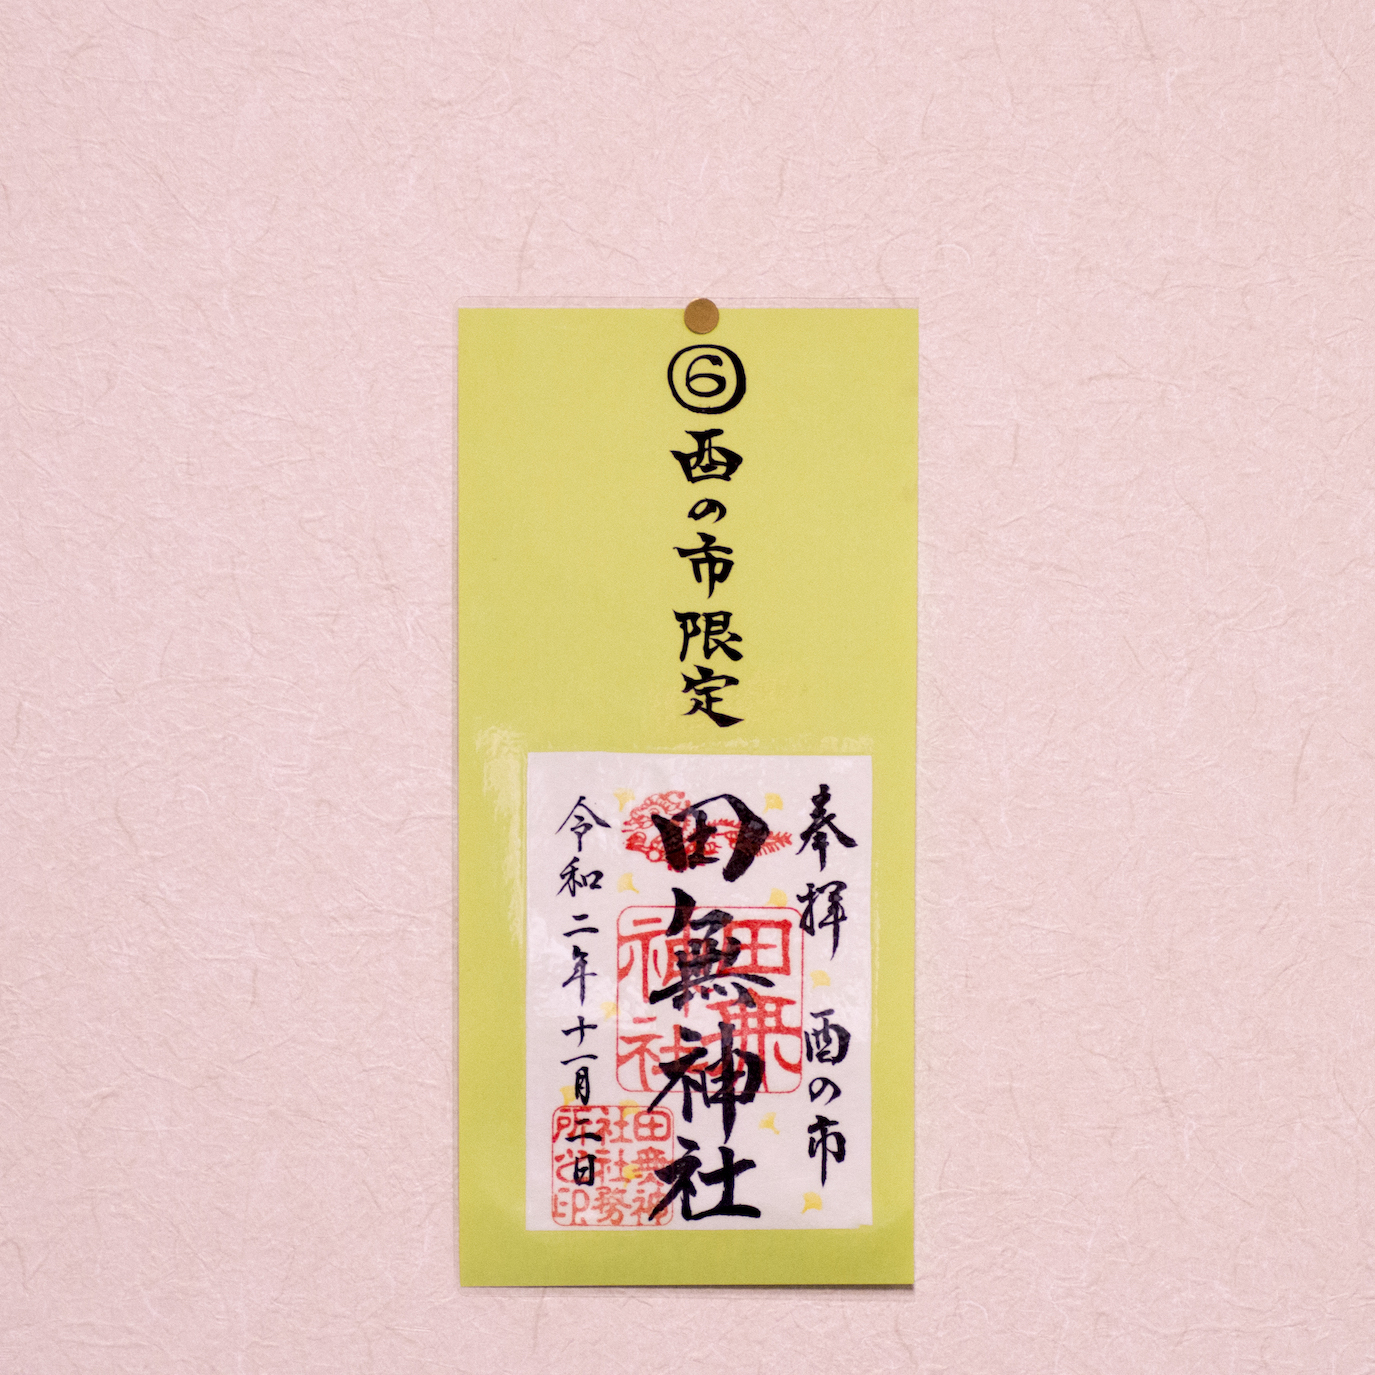 ⑥酉の市限定
奉拝 酉の市
田無神社
令和二年十一月二日
田無神社
田無神社社務所公印